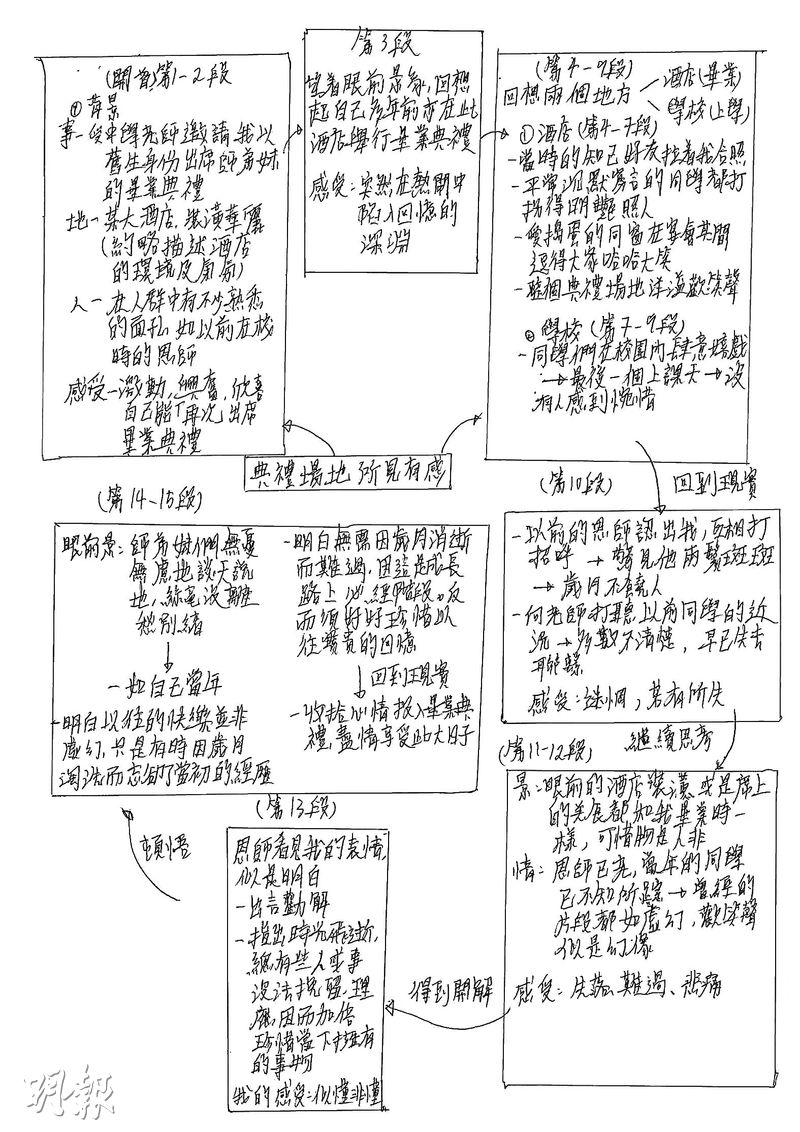 (開首)第1-2段
①背景
事-受中學老師邀請我以
舊生身份出席師弟妹
的畢業典禮
地-某大酒店,裝潢華麗
(約略描述酒店
的環境及氣氛)
人-在人群中有不少熟悉
的面孔,如以前在校
時的恩師
感受-激動,興奮,欣喜
自己能「再次」出席
畢業典禮
第3段
望着眼前景象,回想
起自己多年前亦在此
酒店舉行畢業典禮
感受:突然在熱鬧中
陷入回憶的
深淵
(第4-9段)
回想兩個地方
酒店(畢業)
學校(上學)
①酒店(第4-7段)
-當時的知己好友拉着我合照
-平常沉默寡言的同學都打
扮得明艷照人
-愛搗蛋的同窗在宴會其間
逗得大家哈哈大笑
-整個典禮場地洋溢歡笑聲
②學校(第7-9段)
-同學們在校園內肆意嬉戲
→最後一個上課天→沒
有人感到惋惜
典禮場地所見有感
(第10段)
回到現實
-以前的恩師認出我,互相打
招呼→驚見他兩鬢斑斑
→歲月不饒人
-向老師打聽以前同學的近
況→多數不清楚,早已失去
聯繫
感受:迷惘,若有所失
繼續思考
(第11-12段)
景:眼前的酒店裝潢或是席上
的美食都如我畢業時一
樣,可惜物是人非
情:恩師已老,當年的同學
已不知所蹤→曾經的
片段都如虛幻,歡笑聲
似是幻像
感受:失落、難過、悲痛
得到開解
(第13段)
恩師看見我的表情,
似是明白
-出言勸解
-指出時光飛逝,
總有些人或事
沒法挽留,理
應因而加倍
珍惜當下擁有
的事物
我的感受:似懂非懂
頓悟
(第14-15段)
眼前景:師弟妹們無憂
無慮地談天說
地,絲毫沒離
愁別緒
↓
一如自己當年
-明白以往的快樂並非
虛幻,只是有時因歲月
淘洗而忘卻了當初的經歷
-明白無需因歲月消逝
而難過,因這是成長
路上必經階段。反
而須好好珍惜以
往寶貴的回憶
↓回到現實
-收拾心情投入畢業典
禮,盡情享受此大日子
明報